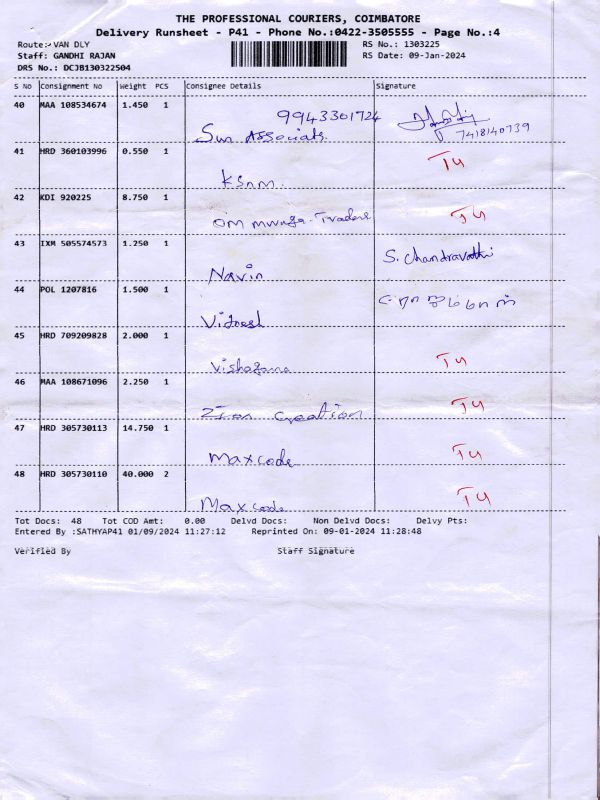 THE PROFESSIONAL COURIERS, COIMBATORE
Delivery Runsheet - P41 - Phone No.:0422-3505555 - Page No.:4
Route:- VAN DLY RS No.: 1303225
Staff: GANDHI RAJAN RS Date: 09-Jan-2024
DRS No.: DCJB130322504
S No Consignment No Weight PCS Consignee Details Signature
40 MAA 108534674 1.450 1 9943301724
Sun Associats. 7418140739
41 HRD 360103996 0.550 1 TU
KSnm.
42 KDI 920225 8.750 1 TU
Om Traders
43 IXM 505574573 1.250 1 S. Chandravathi
Navin
44 POL 1207816 1.500 1
Vignesh
45 HRD 709209828 2.000 1 TU
46 MAA 108671096 2.250 1 TU
Zion Creation
47 HRD 305730113 14.750 1 TU
Maxcode
48 HRD 305730110 40.000 2 TU
Maxcode
Tot Docs: 48 Tot COD Amt: 0.00 Delvd Docs: Non Delvd Docs: Delvy Pts:
Entered By :SATHYAP41 01/09/2024 11:27:12 Reprinted On: 09-01-2024 11:28:48
Verified By Staff Signature